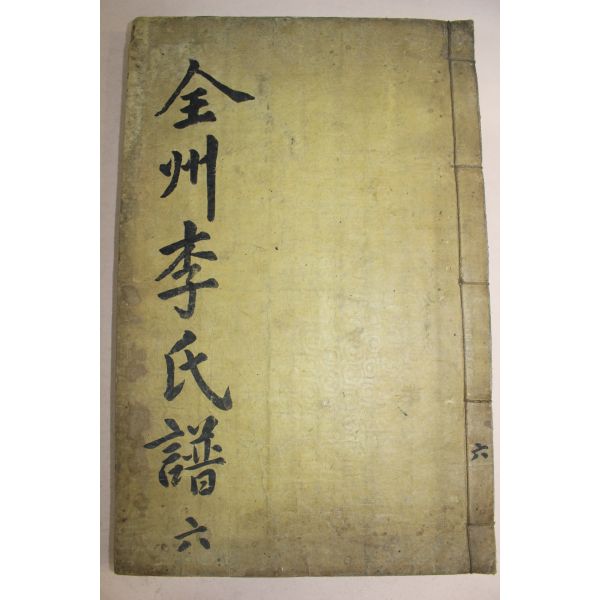 全州李氏譜 六
六